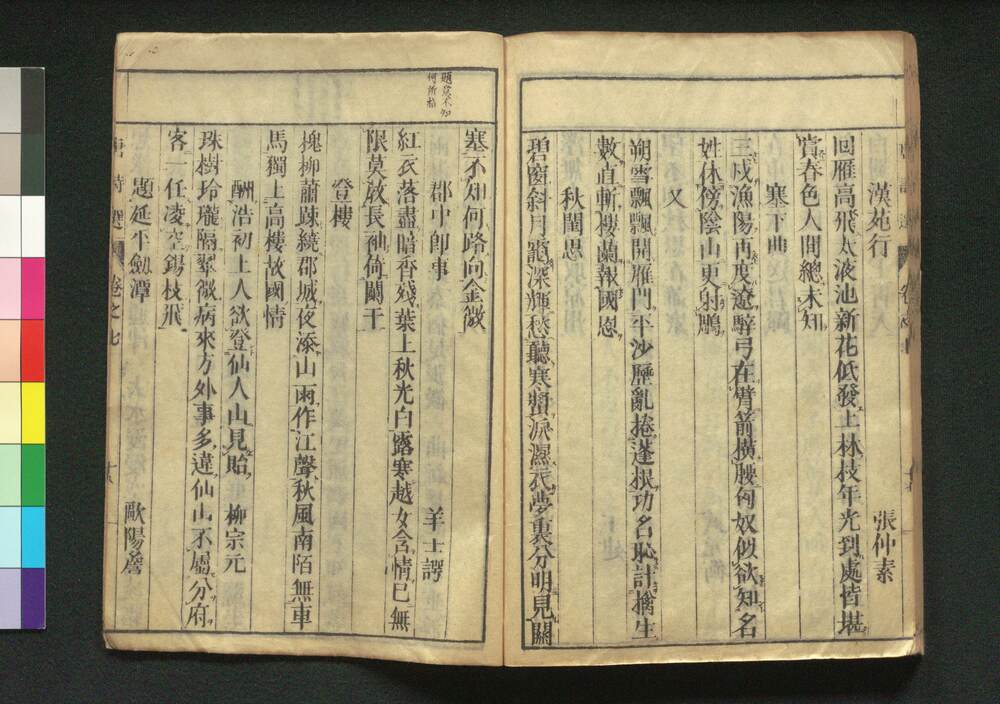 漢苑行 張仲素
回雁高飛太液池新花低發上林枝年光到處皆堪
賞春色人間總未知
塞下曲
三戍漁陽再度遼騂弓在臂箭橫腰匈奴似欲知名
姓休傍陰山更射鵰
又
朔雪飄飄開雁門平沙歷亂捲蓬根功名恥計擒生
數直斬樓蘭報國恩
秋閨思
碧窗斜月藹深輝愁聽寒螿淚濕衣夢裏分明見關
題意不知
何所指
塞不知何路向金微
郡中即事 羊士諤
紅衣落盡暗香殘葉上秋光白露寒越女含情已無
限莫放長袖倚闌干
登樓
槐柳蕭踈繞郡城夜添山雨作江聲秋風南陌無車
馬獨上高樓故國情
酬浩初上人欲登仙人山見貽 柳宗元
珠樹玲瓏隔翠微病來方外事多違仙山不屬分府
客一任凌空錫杖飛
題延平劔潭 歐陽詹
唐詩選 卷之七